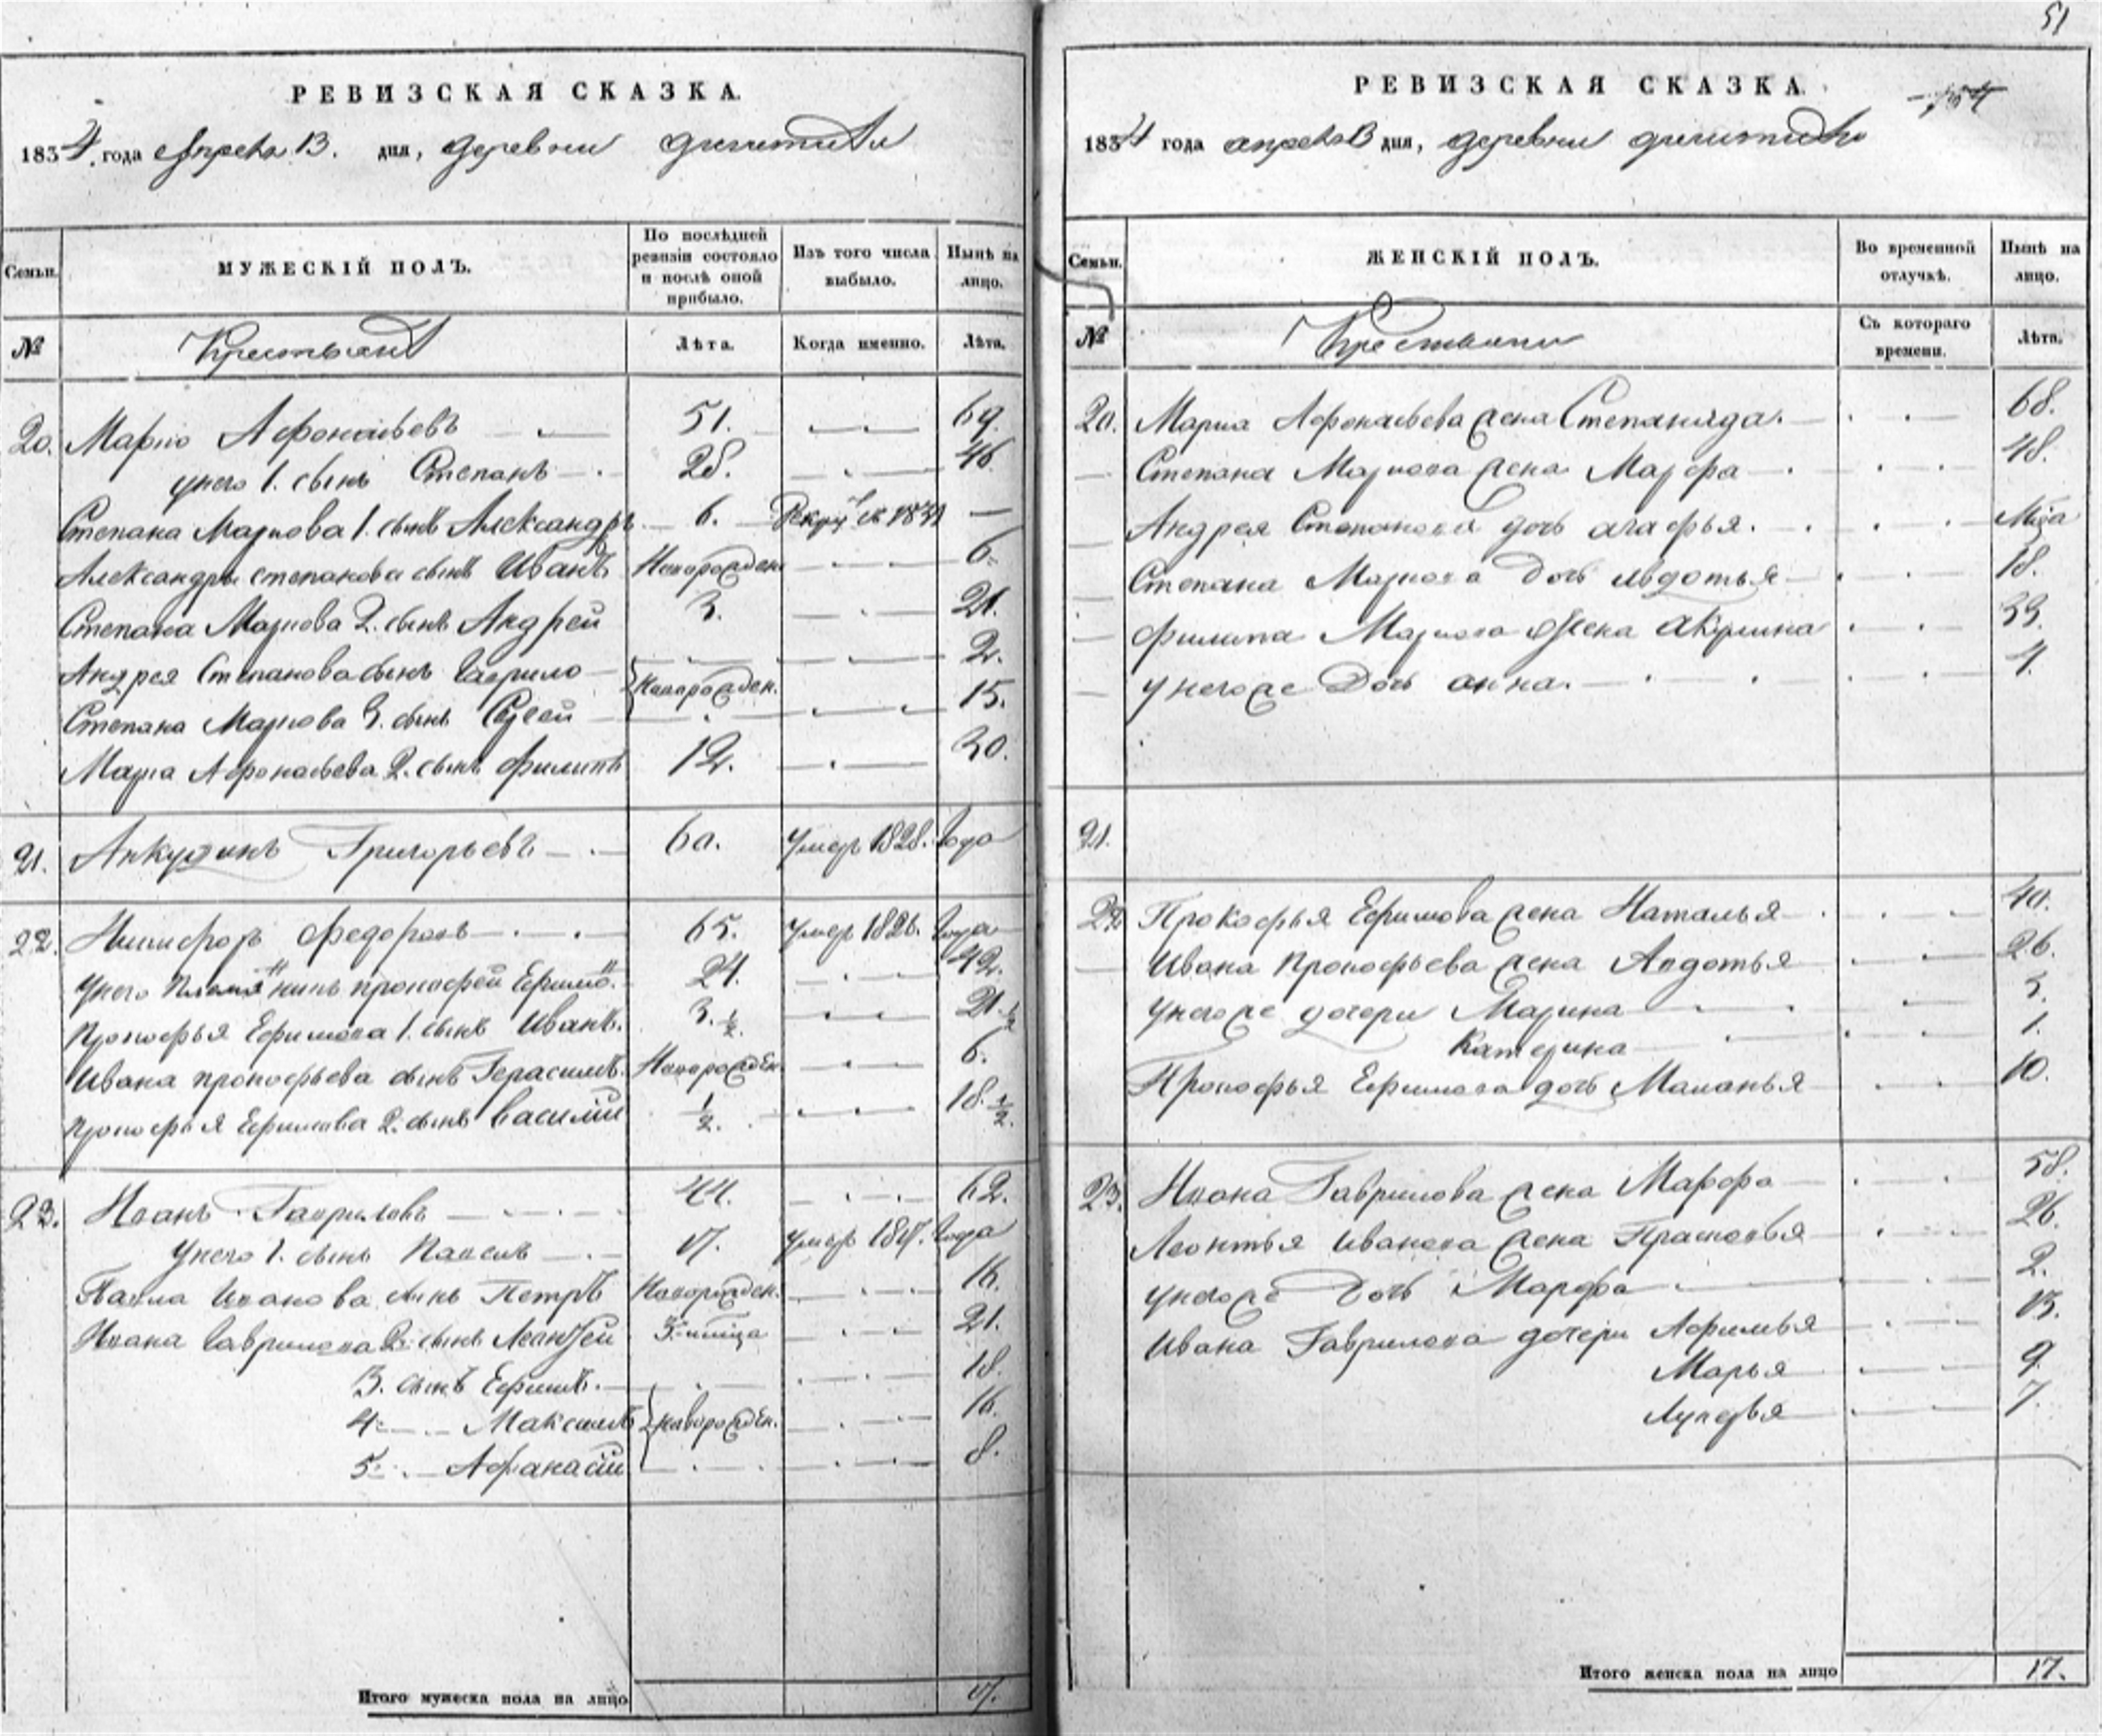 51
РЕВИЗСКАЯ СКАЗКА.
1834 года апреля 13. дня, деревни
Семьи. МУЖЕСКІЙ ПОЛЪ. По послѣдней ревизіи состояло и послѣ оной прибыло. Изъ того числа выбыло. Нынѣ на лицо.
№ Крестьянъ Лѣта. Когда именно. Лѣта.
20. Марко Афонасьевъ 51. 69.
у него 1. сынъ Степанъ 28. 46
Степана Маркова 1. сынъ Александръ 6. —
Александры степанова сынъ Иванъ Новорожден 6.
Степана Маркова 2. сынъ Андрей 3. 21.
Андрея Степанова сынъ Гаврило 2.
Новорожден.
Степана Маркова 3. сынъ Сергей 15.
Марка Афонасьева 2. сынъ Филипъ 12. 30.
21. Анкудинъ Григорьевъ 60. умер 1828. года
22. Никифоръ Федоровъ 65. умер 1826. года
у него племянникъ прокофей Ефимов 24. 42.
Прокофья Ефимова 1. сынъ Иванъ. 3. ½ 21. ½
Ивана прокофьева сынъ Герасимъ. Новорожден. 6.
Прокофья Ефимова 2. сынъ Василий ½. 18. ½.
23. Иванъ Гавриловъ 44. 62.
у него 1. сынъ Павелъ 17. умер года
Павла Иванова сынъ Петръ Новорожден. 16.
Ивана Гаврилова 2. сынъ Леонтей 21.
3. сынъ Ефимъ. 18.
4. Максимъ новорожден. 16.
5. Афанасий 8.
Итого мужеска пола на лицо 17.
РЕВИЗСКАЯ СКАЗКА.
1834 года апреля 13 дня, деревни
Семьи. ЖЕНСКІЙ ПОЛЪ. Во временной отлучкѣ. Нынѣ на лицо.
№ Съ котораго времени. Лѣта.
20. Марка Афонасьева жена Степанида. 68.
Степана Маркова жена Марфа 48.
Андрея Степанова дочь агафья.
Степана Маркова дочь авдотья 18.
Филипа Маркова жена акулина 33.
у него же дочь анна. 4.
21.
22 Прокофья Ефимова жена Наталья 40.
Ивана Прокофьева жена Авдотья 26.
у него же дочери Марина 3.
Катерина 1.
Прокофья Ефимова дочь Маланья 10.
23. Ивана Гаврилова жена Марфа 58.
Леонтья Иванова жена Прасковья 26.
у него же дочь Марфа 2.
Ивана Гаврилова дочери Афимья 13.
Марья 9.
Лукерья 7.
Итого женска пола на лицо 17.